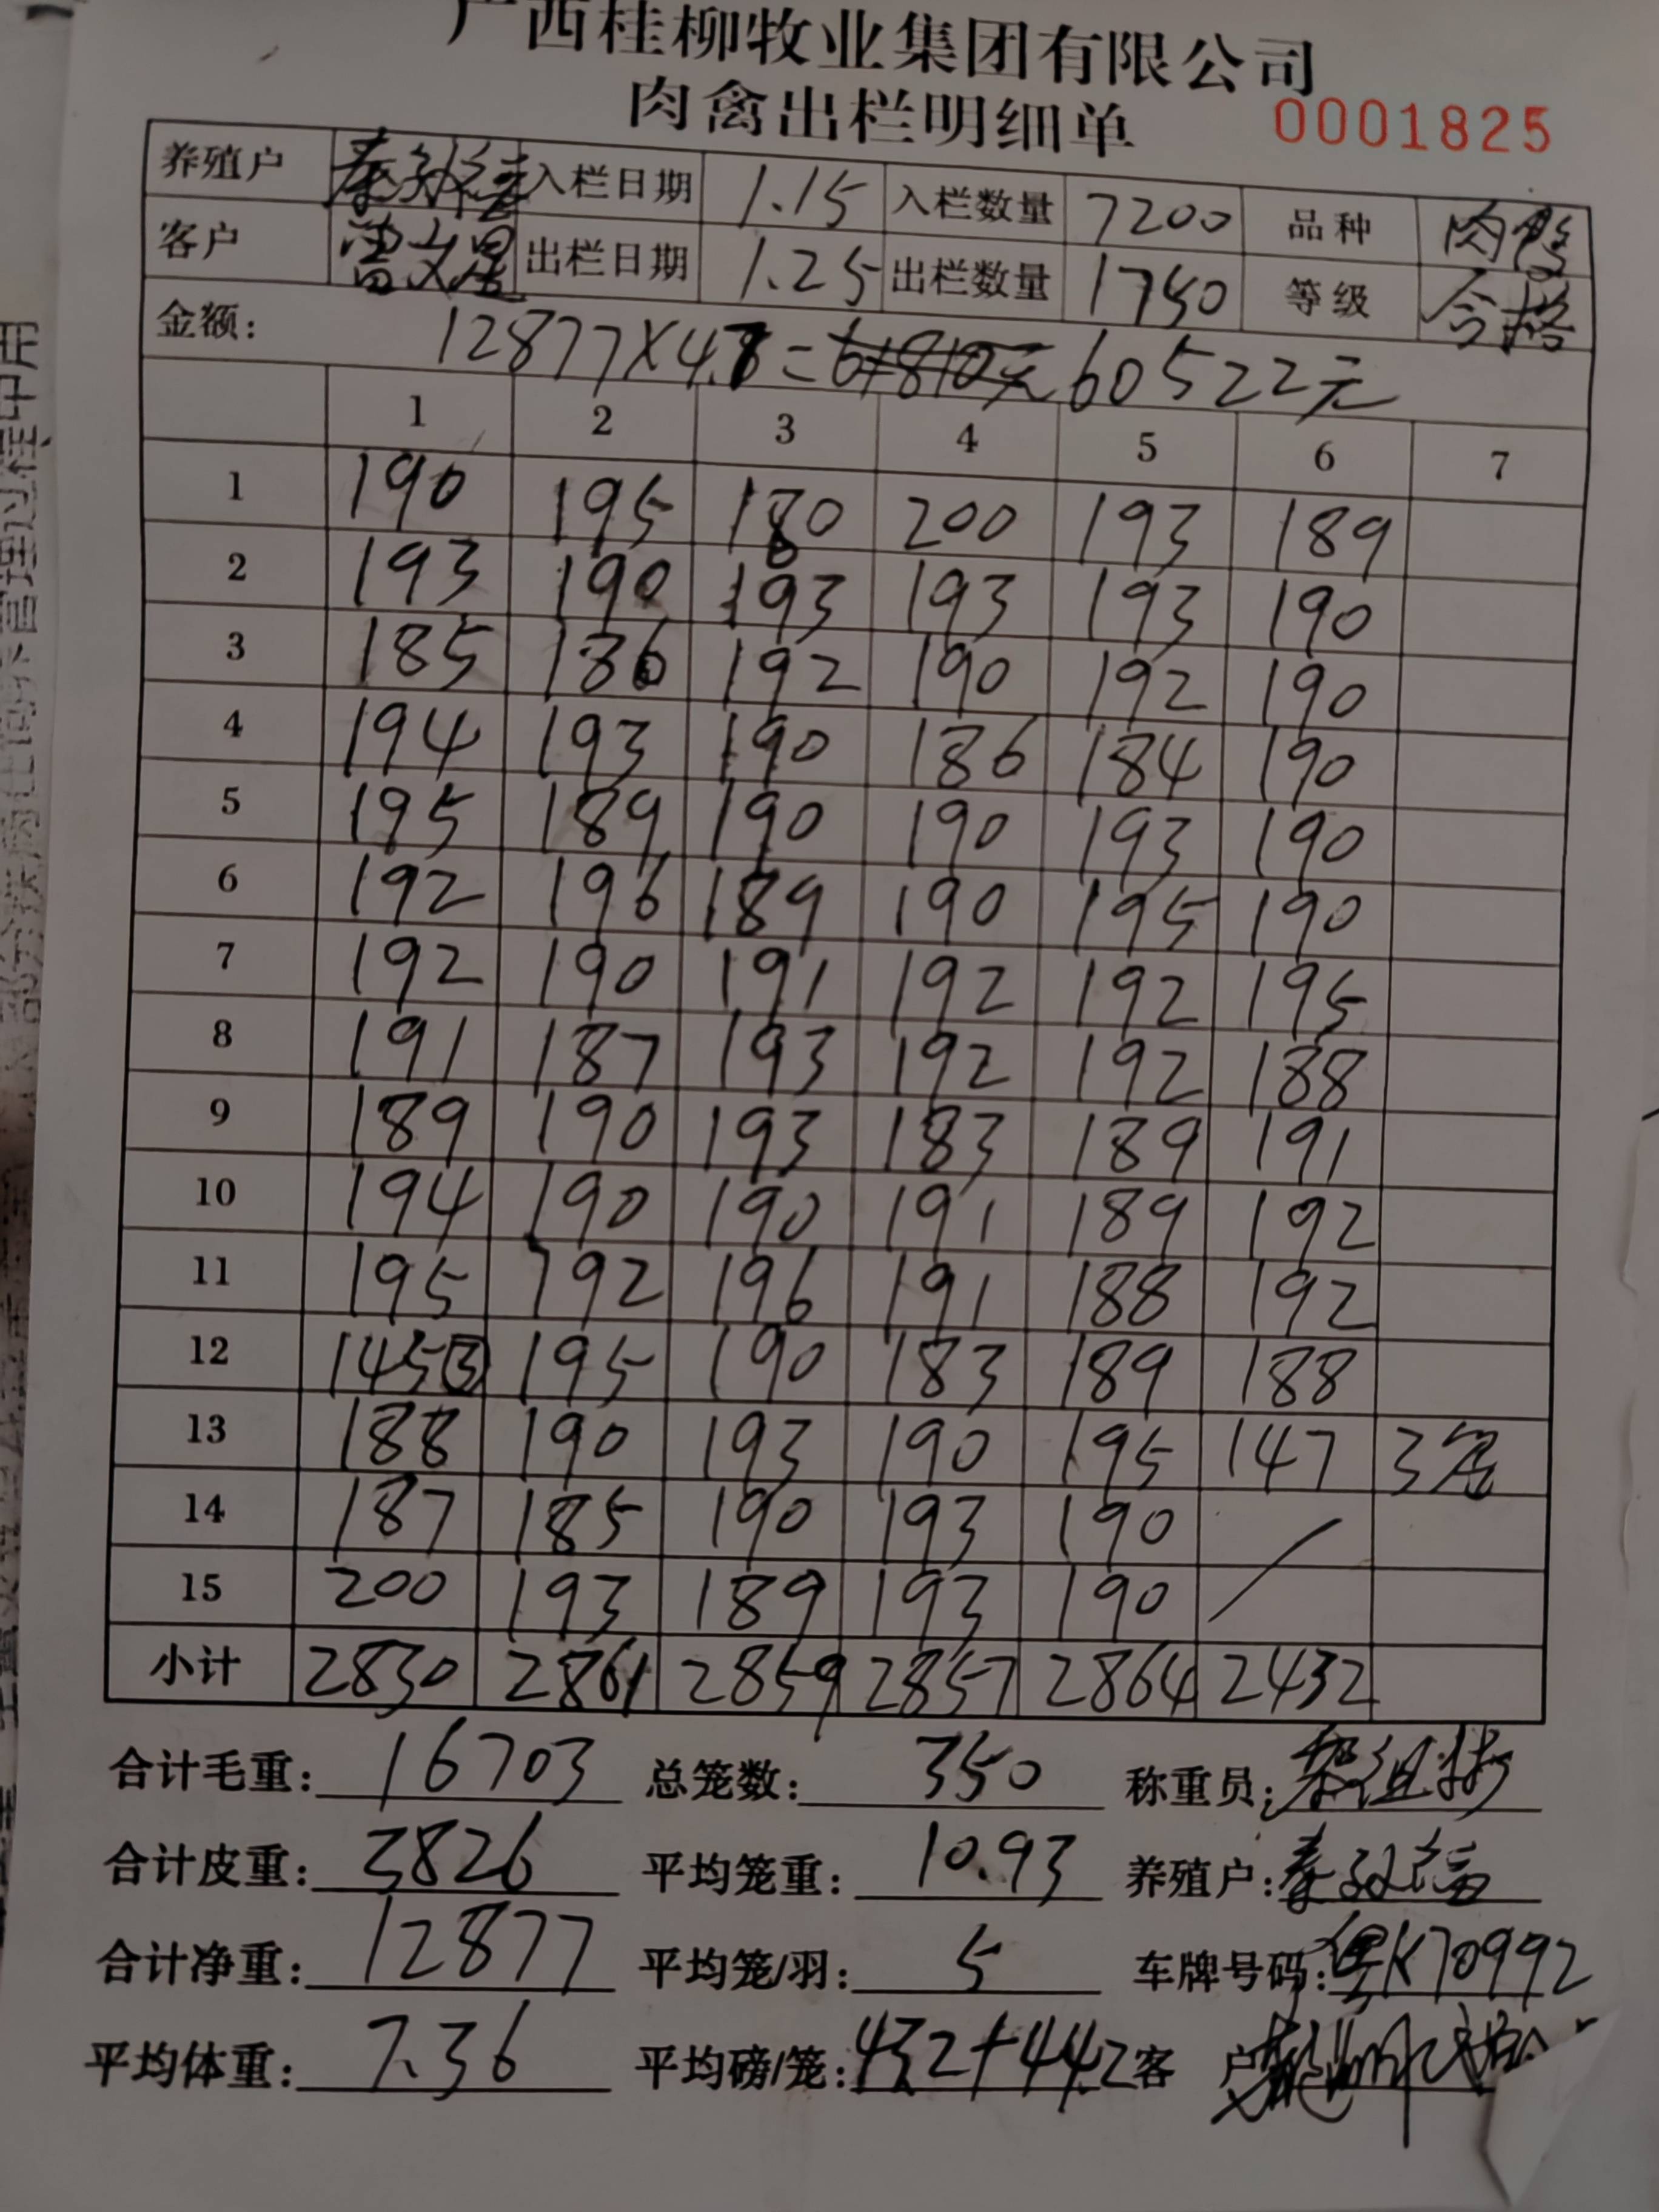 广西桂柳牧业集团有限公司
肉禽出栏明细单 0001825
养殖户 秦 入栏日期 1.15 入栏数量 7200 品种 肉鸭
客户 曾文星 出栏日期 1.25 出栏数量 1750 等级 合格
金额: 12877×4.7=61810元 60522元
1 2 3 4 5 6 7
1 190 195 180 200 193 189
2 193 190 193 193 193 190
3 185 186 192 190 192 190
4 194 193 190 186 184 190
5 195 189 190 190 193 190
6 192 196 189 190 195 190
7 192 190 191 192 192 195
8 191 187 193 192 192 188
9 189 190 193 183 189 191
10 194 190 190 191 189 192
11 195 192 196 191 188 192
12 145③ 195 190 183 189 188
13 188 190 193 190 195 147 3笼
14 187 185 190 193 190
15 200 193 189 193 190
小计 2830 2861 2859 2857 2864 2432
合计毛重: 16703 总笼数: 350 称重员:
合计皮重: 3826 平均笼重: 10.93 养殖户: 秦
合计净重: 12877 平均笼/羽: 5 车牌号码: 粤K70992
平均体重: 7.36 平均磅/笼: 4 客 户